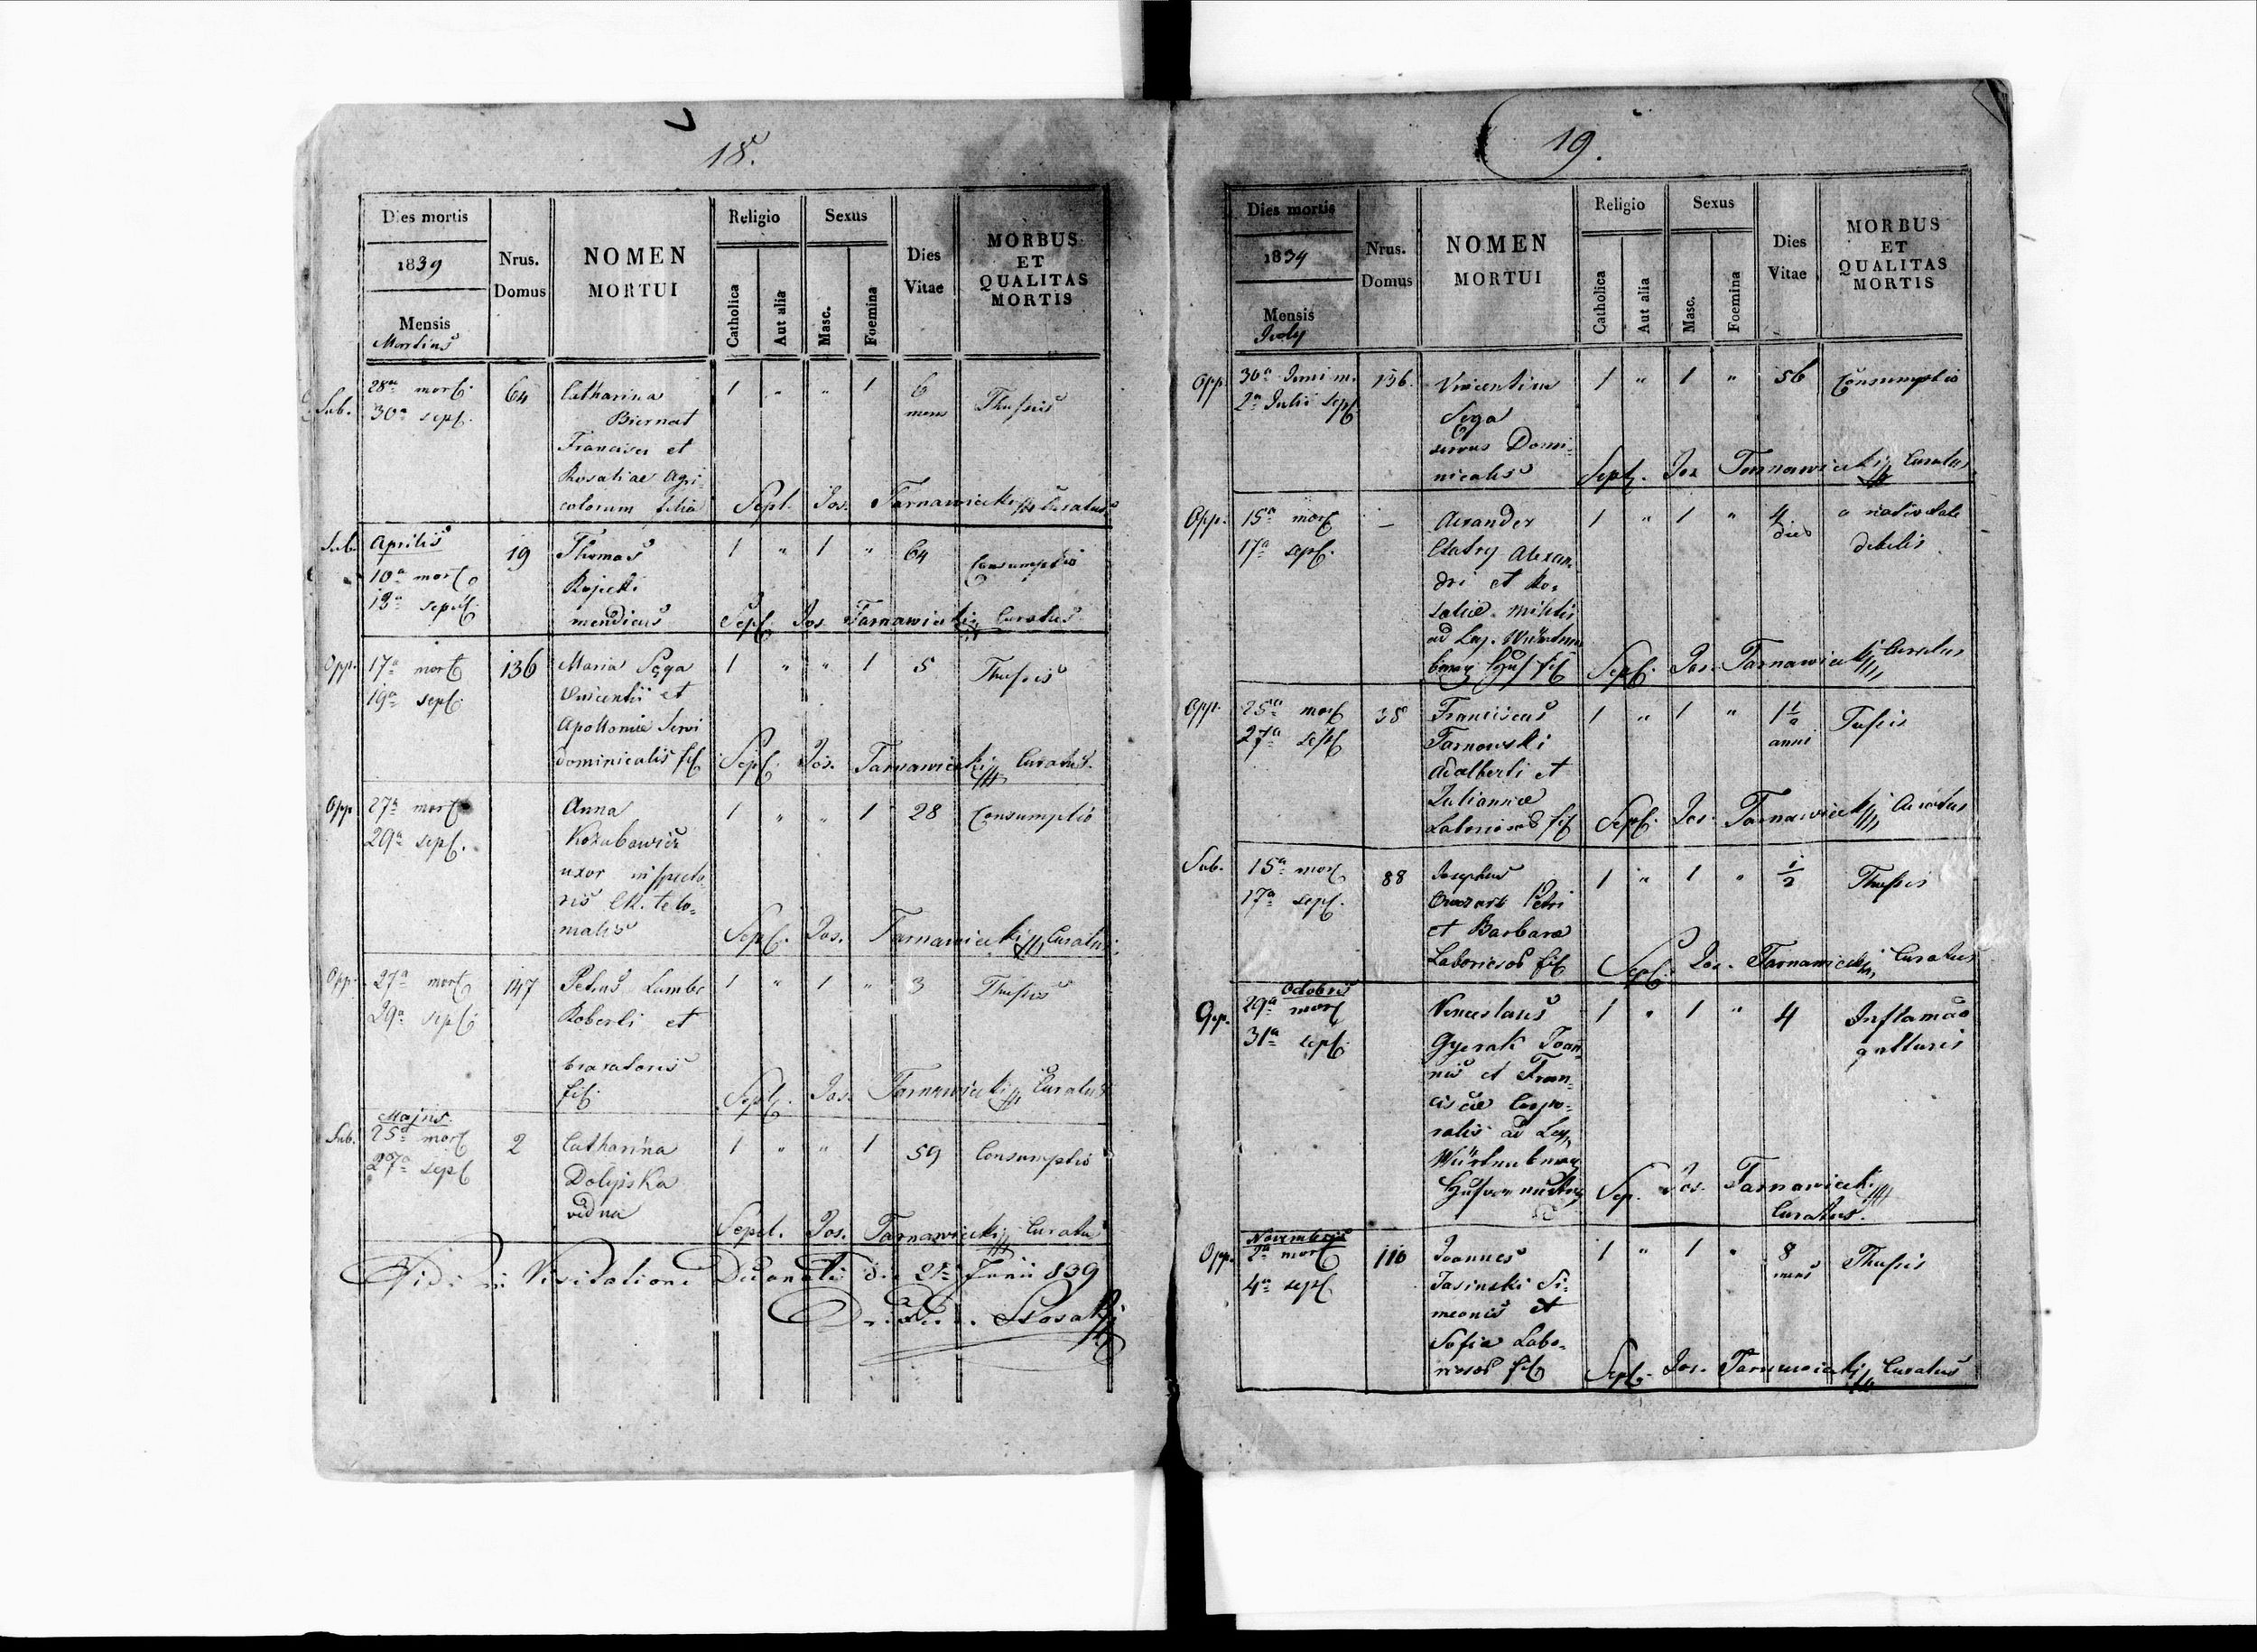 18.
Dies mortis
1839
Mensis
Martius
Nrus.
Domus
NOMEN
MORTUI
Religio
Catholica
Aut alia
Sexus
Masc.
Foemina
Dies
Vitae
MORBUS
ET
QUALITAS
MORTIS
Sub.
28a mort.
30a sept.
64
Catharina
Biernat
Francisci et
Rosaliae Agri-
colarum filia
1 " " 1
6
mens
Thussis
Sept. Jos. Tarnawiecki Curatus
Sub.
Aprilis
10a mort
12a sept.
19
Thomas
mendicus
1 " 1 "
64
Consumptio
Sept. Jos. Tarnawiecki Curatus
Opp.
17a mort
19a sept.
136
Maria Sęga
Vincentii et
Apolloniae Servi
dominicalis fil
1 " " 1
5
Thussis
Sept. Jos. Tarnawiecki Curatus.
Opp
27a mort
29a sept.
Anna
Kozubowicz
uxor inspecto-
ris
malis
1 " " 1
28
Consumptio
Sept. Jos. Tarnawiecki Curatus
Opp.
27a mort
29a sept.
147
Petrus Lambe
Roberti et
braxatoris
fil.
1 " 1 "
3
Thussis
Sept. Jos. Tarnawiecki Curatus
Sub.
Majus.
25a mort
27a sept
2
Catharina
Dolijska
vidua
1 " " 1
59
Consumptio
Sept. Jos. Tarnawiecki Curatus
Vidi in Visitatione Decanali die 21a Junii 839
19.
Dies mortis
1839
Mensis
July
Nrus.
Domus
NOMEN
MORTUI
Religio
Catholica
Aut alia
Sexus
Masc.
Foemina
Dies
Vitae
MORBUS
ET
QUALITAS
MORTIS
Opp.
30a Juni m.
2a Julii sept.
136.
Vincentius
Sęga
servus Domi-
nicalis
1 " 1 "
56
Consumptio
Sept. Jos Tarnawiecki Curatus
Opp.
15a mort
17a sept.
—
Alexander
Alexan-
dri et Ro-
saliae militis
ad Leg.
fil
1 " 1 "
4
dies
a nativitate
debilis
Sept. Jos. Tarnawiecki Curatus
Opp.
25a mort
27a sept
38
Franciscus
Tarnowski
Adalberti et
Juliannae
Laborios fil
1 " 1 "
1½
anni
Tussis
Sept. Jos. Tarnawiecki Curatus
Sub.
15a mort
17a sept.
88
Josephus
Petri
et Barbara
Laborios fil
1 " 1 "
½
Thussis
Sept. Jos. Tarnawiecki Curatus
Opp.
Octobris
29a mort
31a sept.
Venceslaus
Gyerak Joan-
nis et Fran-
ciscae Corpo-
ralis ad Leg.
1 " 1 "
4
Inflamão
gutturis
Sep. Jos. Tarnawiecki
Curatus.
Opp.
Novembris
2a mort
4a sept.
110
Joannes
Jasinski Si-
meonis et
Sofia Labo-
rios fil
1 " 1 "
8
mens
Thussis
Sept. Jos. Tarnawiecki Curatus